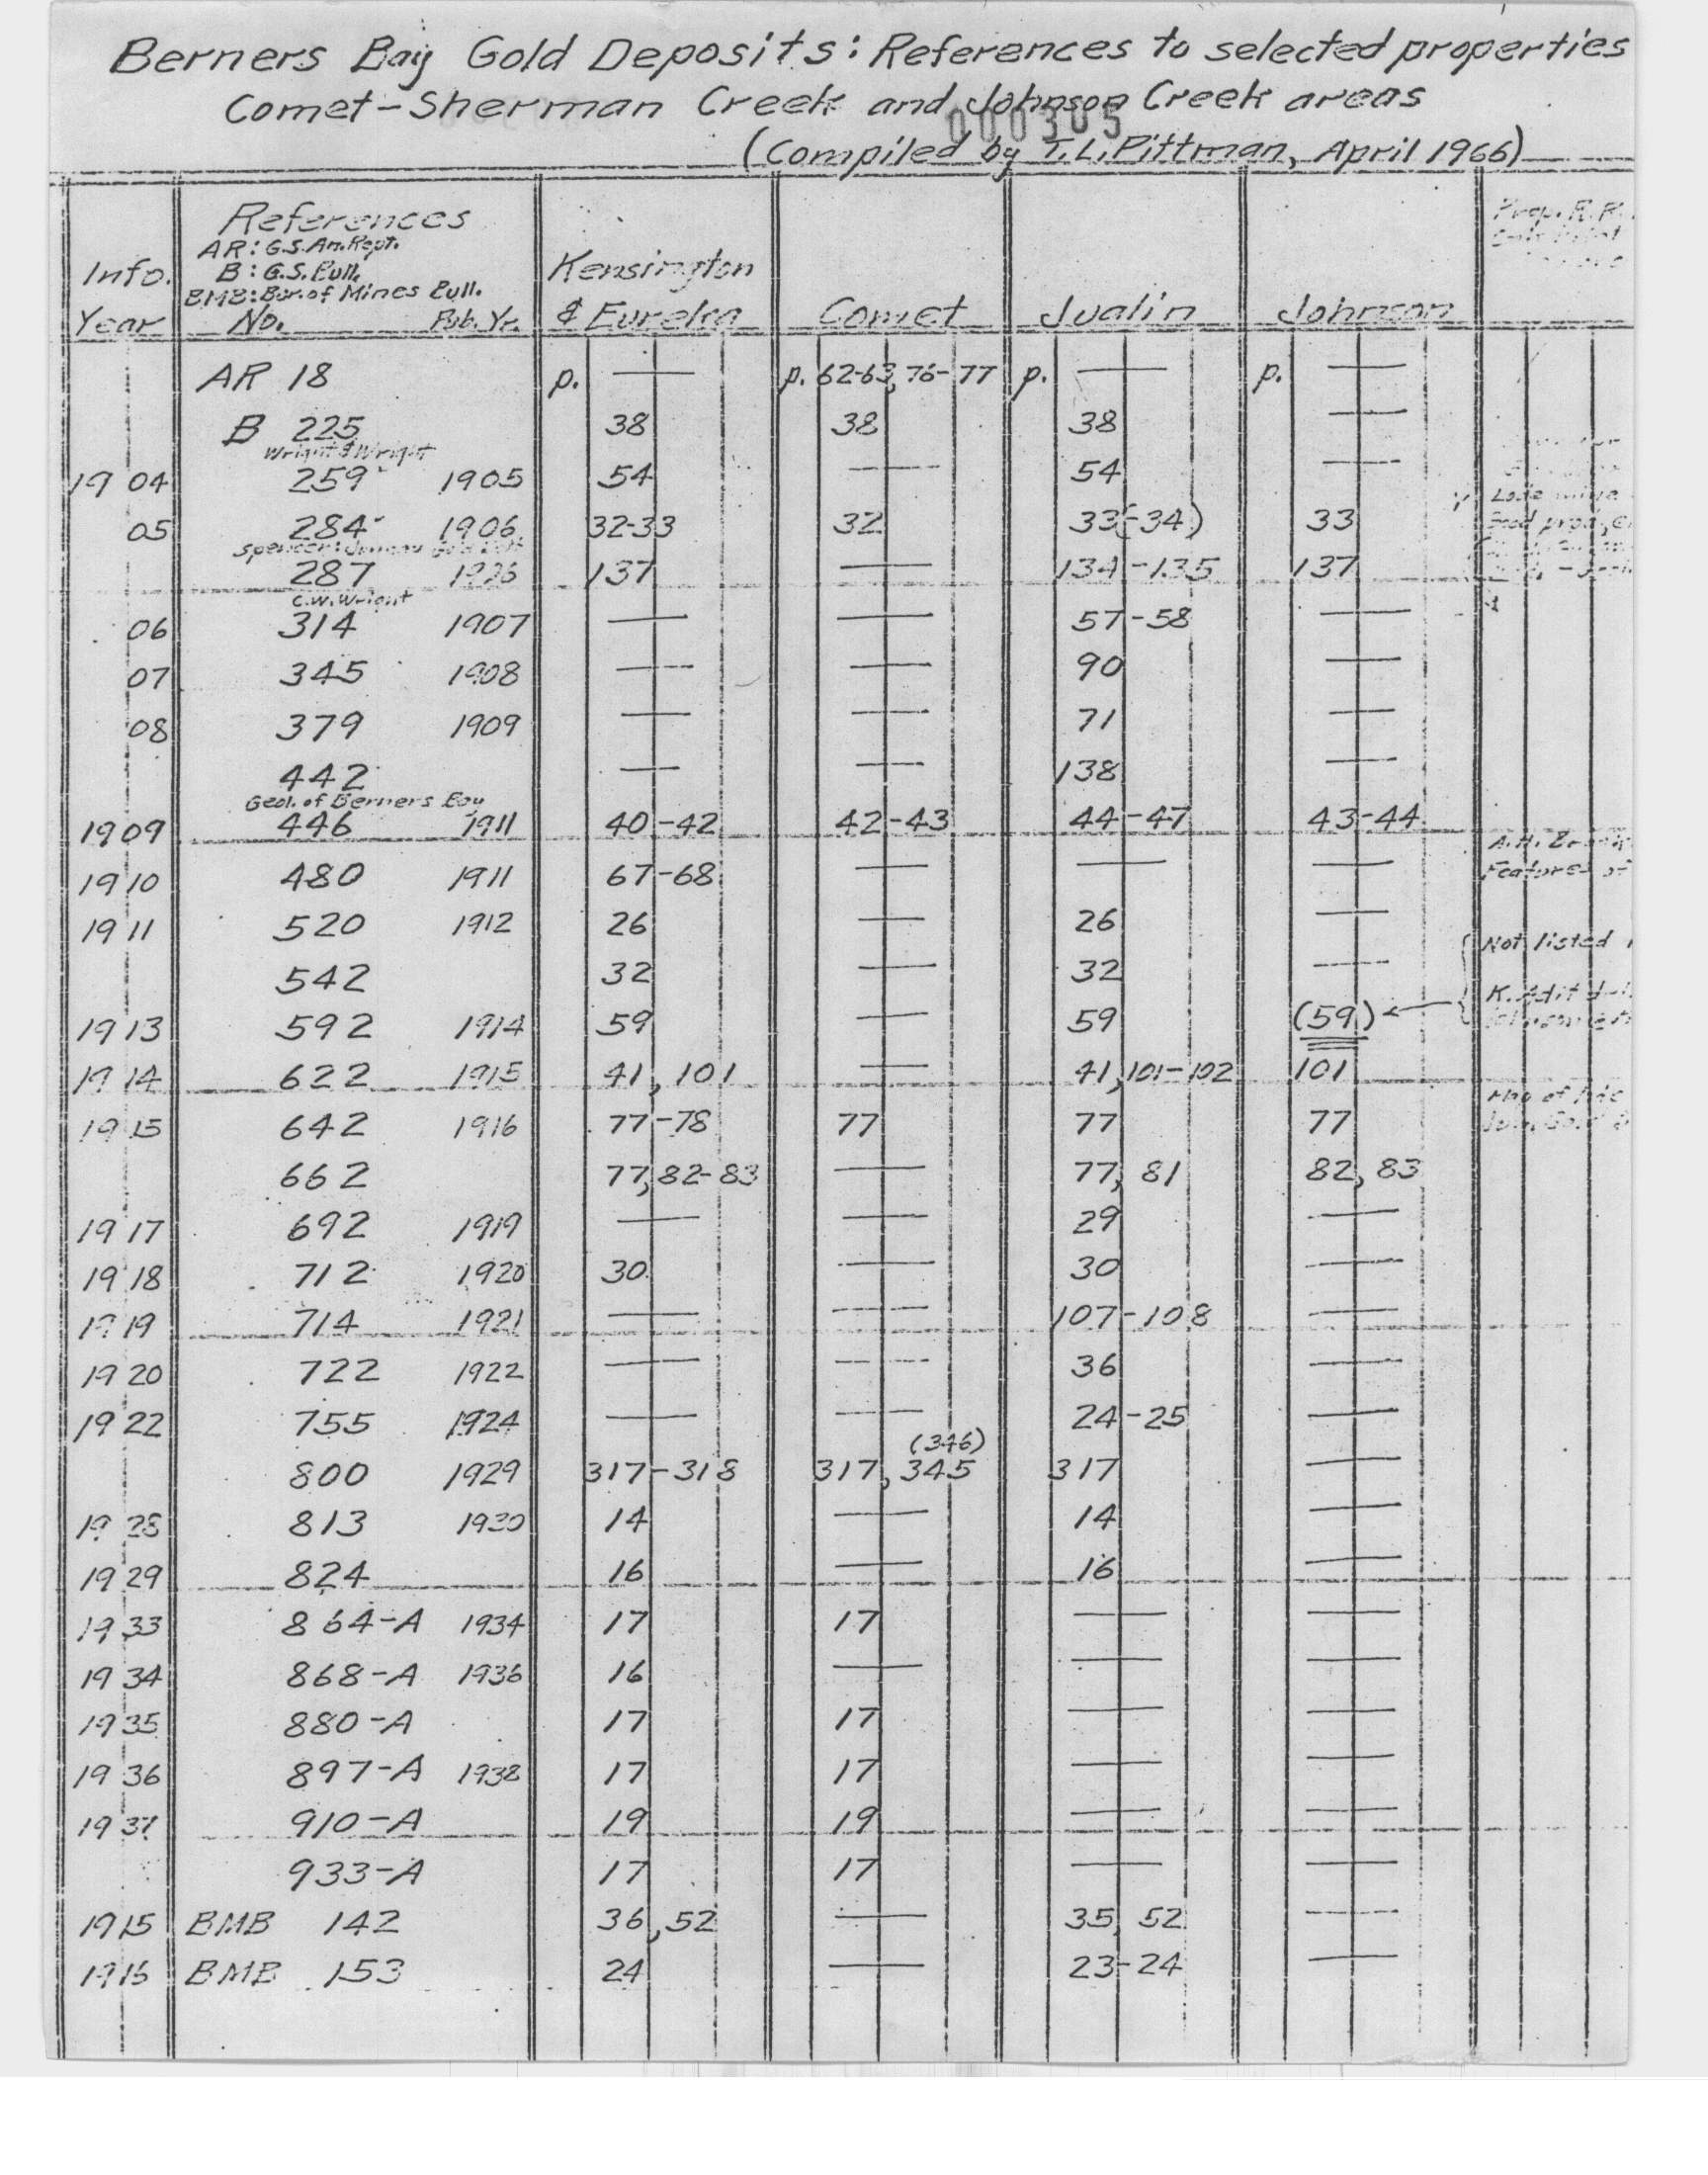 Berners Bay Gold Deposits: References to selected properties
Comet-Sherman Creek and Johnson Creek areas
000305
(Compiled by T.L. Pittman, April 1966)
Info. Year
References
AR: G.S. An. Rept.
B: G.S. Bull.
BMB: Bur. of Mines Bull.
No. Pub. Yr.
Kensington & Eureka
Comet
Jualin
Johnson
Prop. R.R.
AR 18 p. — p. 62-63, 76-77 p. — p. —
B 225 38 38 38 —
Wright & Wright
1904 259 1905 54 — 54 —
05 284 1906 32-33 32 33(-34) 33
Spencer: Juneau Gold
287 1906 137 — 134-135 137
C.W. Wright
06 314 1907 — — 57-58 —
07 345 1908 — — 90 —
08 379 1909 — — 71 —
442 — — 138 —
Geol. of Berners Bay
1909 446 1911 40-42 42-43 44-47 43-44
A.H.
1910 480 1911 67-68 — — —
Features of
1911 520 1912 26 — 26 —
Not listed
542 32 — 32 —
K. Adit
1913 592 1914 59 — 59 (59)
1914 622 1915 41, 101 — 41, 101-102 101
Map of
1915 642 1916 77-78 77 77 77
662 77, 82-83 — 77, 81 82, 83
1917 692 1919 — — 29 —
1918 712 1920 30 — 30 —
1919 714 1921 — — 107-108 —
1920 722 1922 — — 36 —
1922 755 1924 — — 24-25 —
(346)
800 1929 317-318 317, 345 317 —
1928 813 1930 14 — 14 —
1929 824 16 — 16 —
1933 864-A 1934 17 17 — —
1934 868-A 1936 16 — — —
1935 880-A 17 17 — —
1936 897-A 1938 17 17 — —
1937 910-A 19 19 — —
933-A 17 17 — —
1915 BMB 142 36, 52 — 35, 52 —
1916 BMB 153 24 — 23-24 —